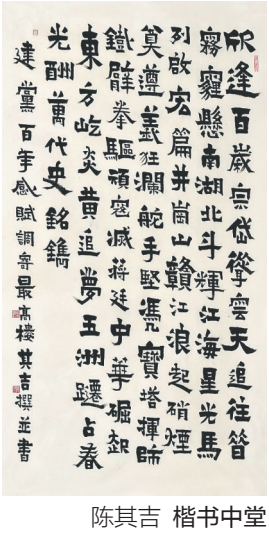 欣逢百歲宗岱擎雲天追往昔
霧霾懸南湖北斗輝江海星光馬
列啟宏篇井崗山贛江浪起硝煙
奠遵義狂瀾舵手堅憑寶塔揮師
鐵臂拳驅頑寇滅蔣廷中華崛起
東方屹炎黃追夢五洲躚占春
光酬萬代史銘鐫
建黨百年感賦調寄最高樓其吉撰並書
陈其吉 楷书中堂